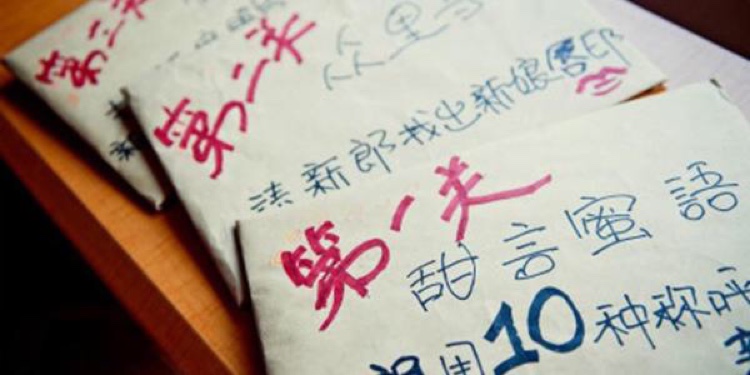 第三关
第二关 众里
请新郎找出新娘唇印
第一关
甜言蜜語
用10种称呼